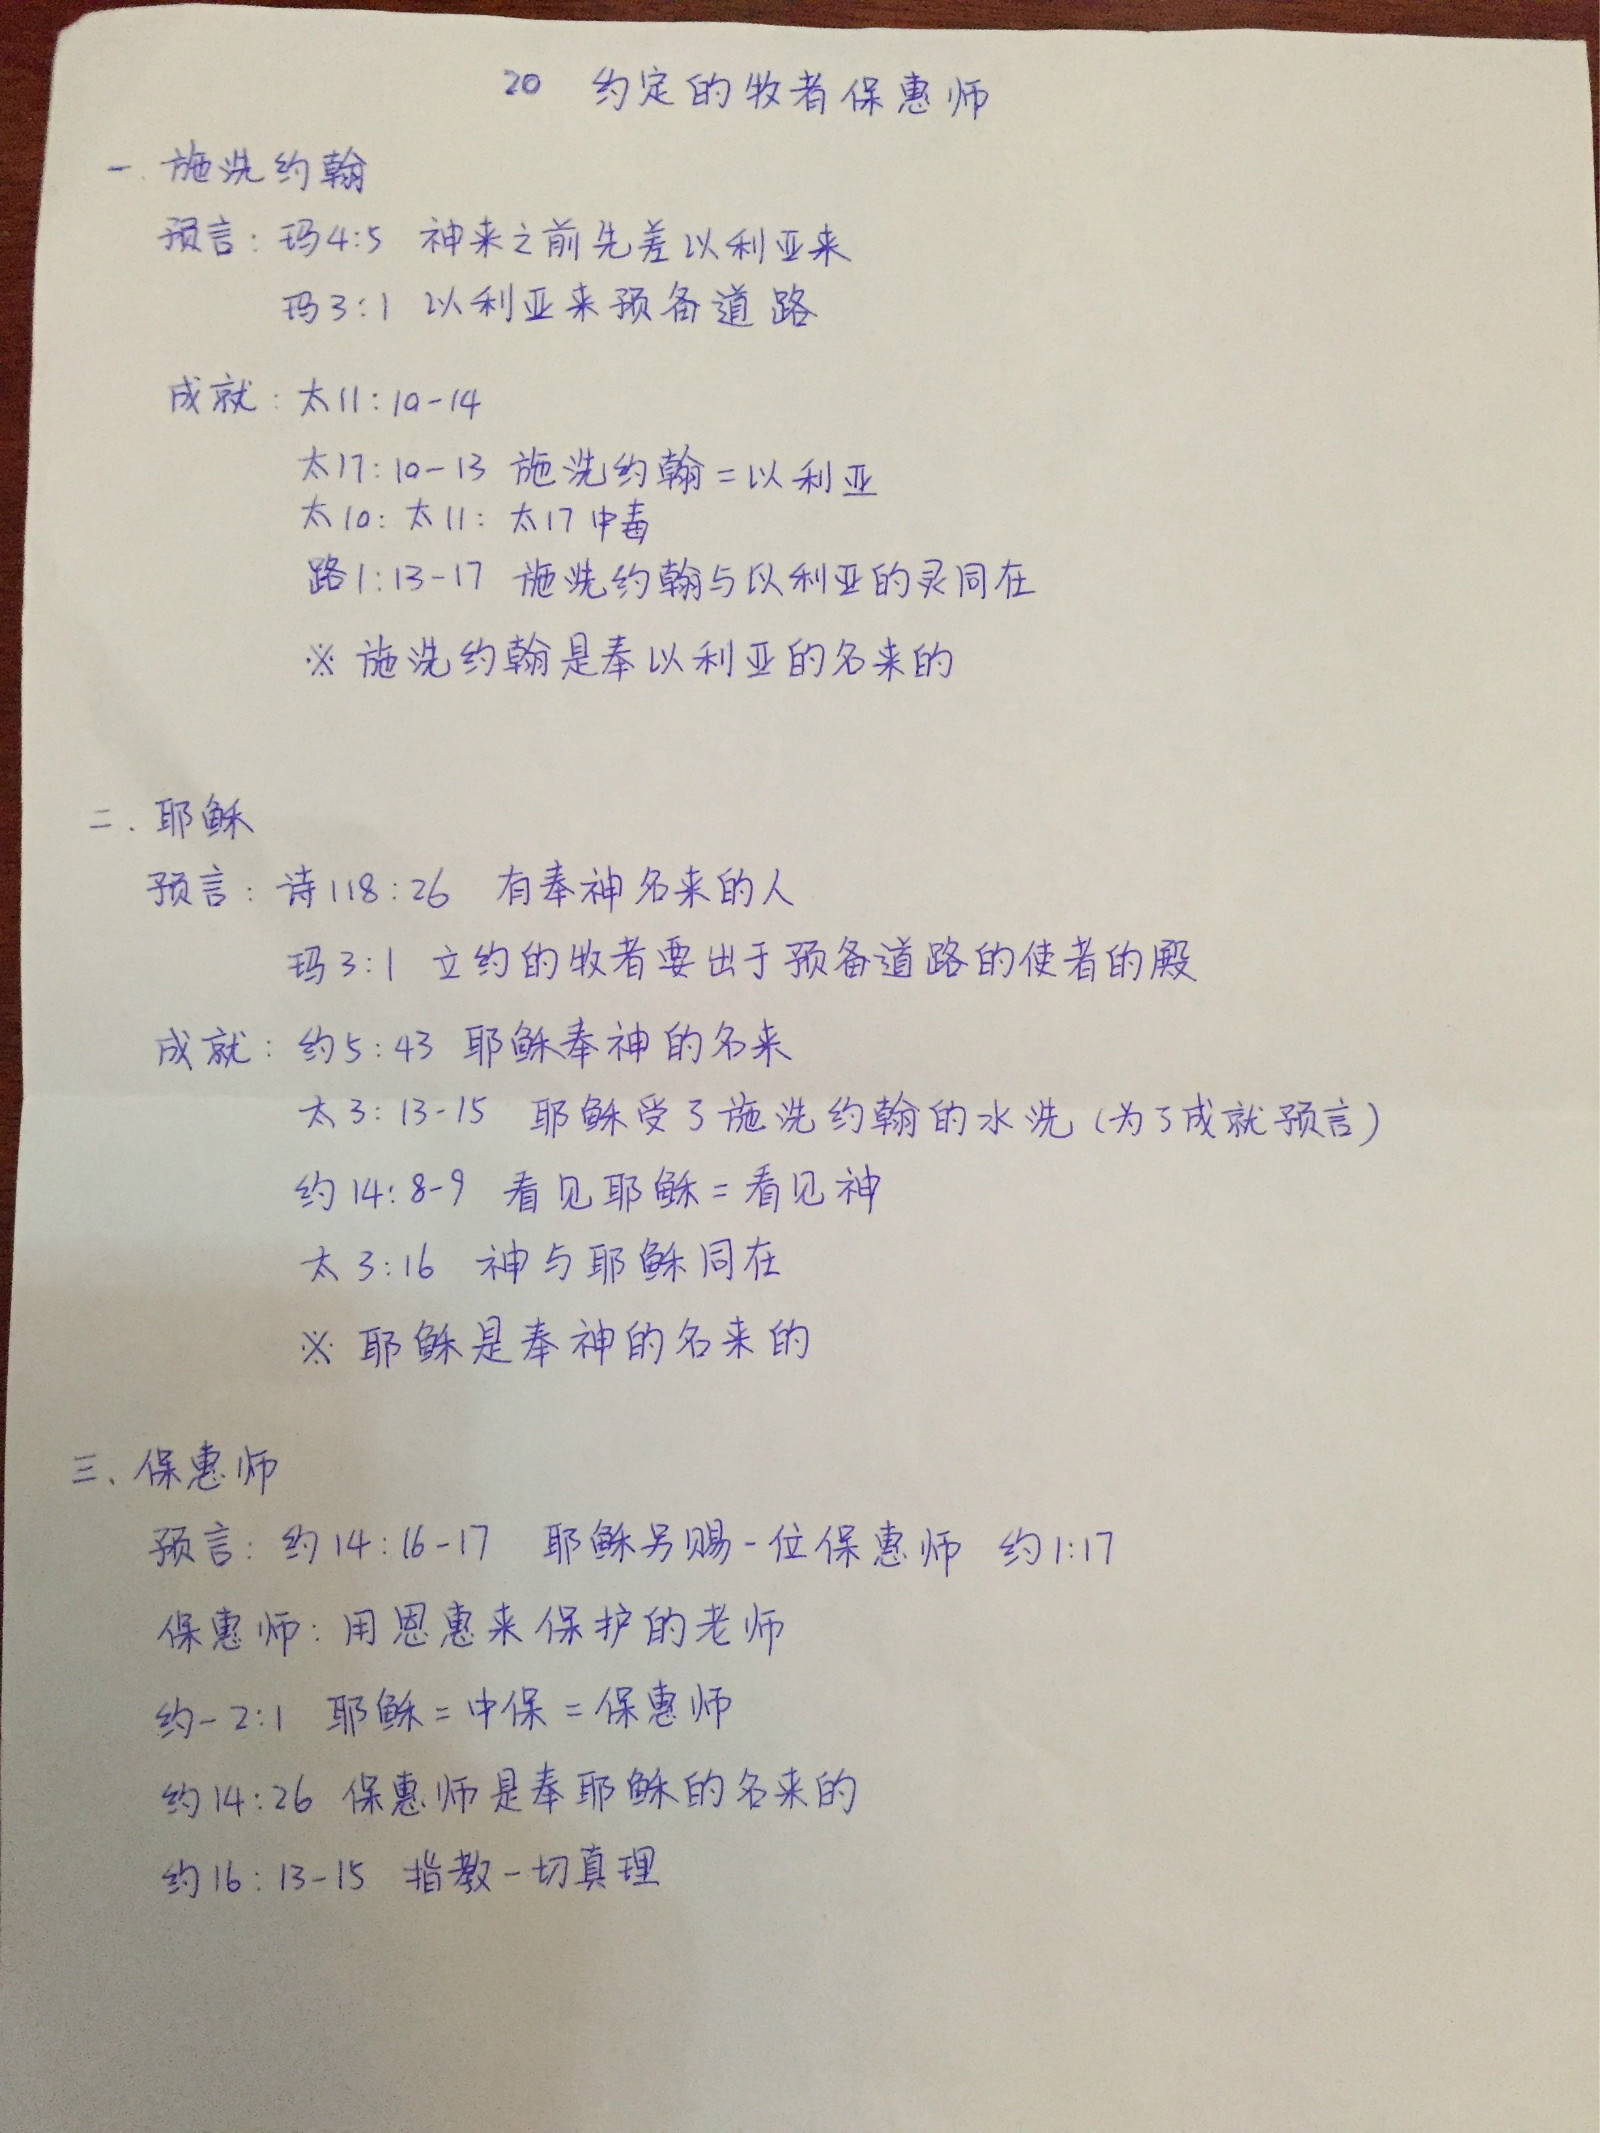 20 约定的牧者保惠师
一.施洗约翰
预言：玛4:5 神来之前先差以利亚来
玛3:1 以利亚来预备道路
成就：太11:10-14
太17:10-13 施洗约翰=以利亚
太10: 太11: 太17中毒
路1:13-17 施洗约翰与以利亚的灵同在
※ 施洗约翰是奉以利亚的名来的
二.耶稣
预言：诗118:26 有奉神名来的人
玛3:1 立约的牧者要出于预备道路的使者的殿
成就：约5:43 耶稣奉神的名来
太3:13-15 耶稣受了施洗约翰的水洗(为了成就预言)
约14:8-9 看见耶稣=看见神
太3:16 神与耶稣同在
※ 耶稣是奉神的名来的
三、保惠师
预言：约14:16-17 耶稣另赐一位保惠师 约1:17
保惠师：用恩惠来保护的老师
约一2:1 耶稣=中保=保惠师
约14:26 保惠师是奉耶稣的名来的
约16:13-15 指教一切真理